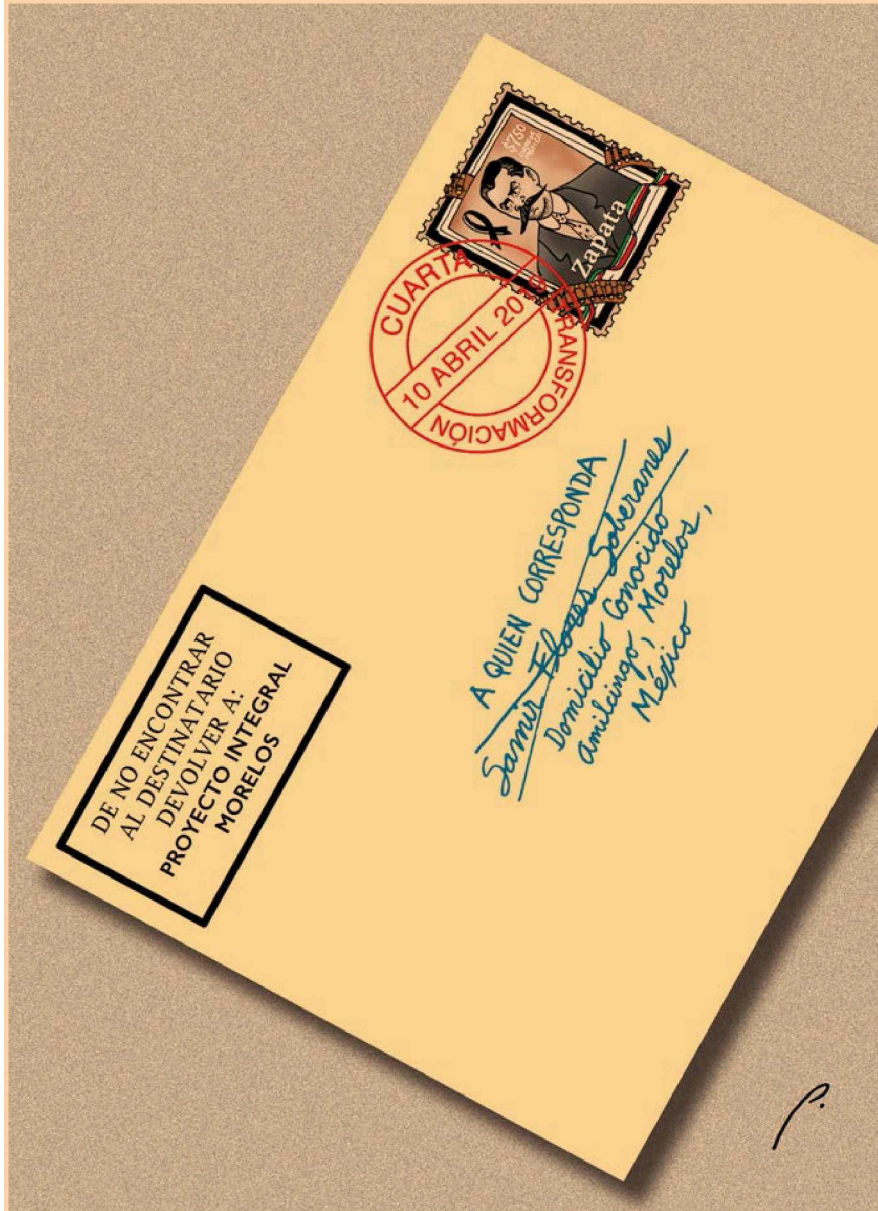 $7.50
Zapata
CUARTA TRANSFORMACIÓN
10 ABRIL 2019
A QUIEN CORRESPONDA
Samir Flores Soberanes
Domicilio Conocido
Amilcingo, Morelos,
México
DE NO ENCONTRAR
AL DESTINATARIO
DEVOLVER A:
PROYECTO INTEGRAL
MORELOS